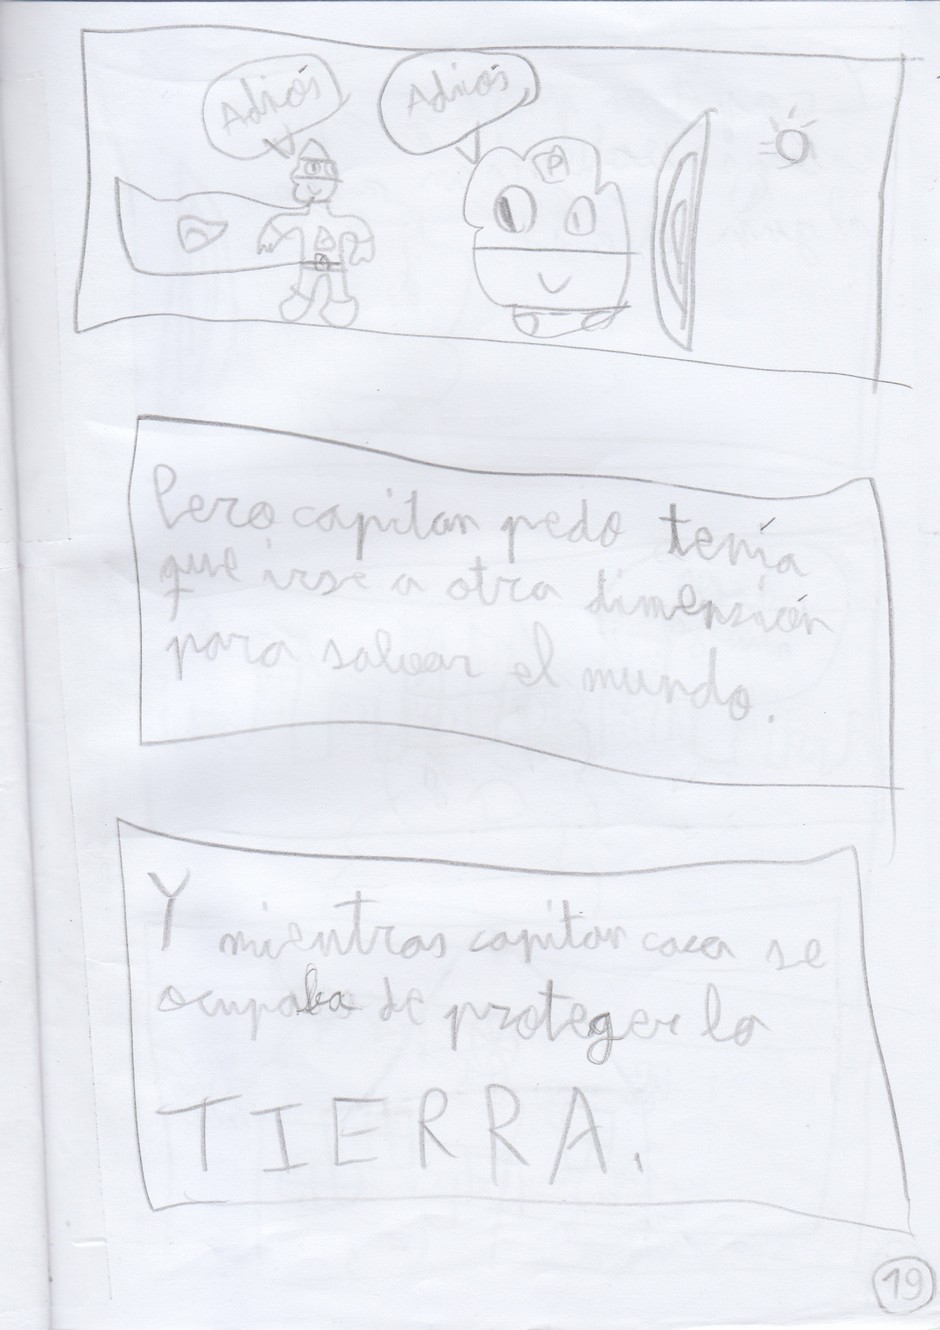 Adiós
Adiós
P
Pero capitan pedo tenía
que irse a otra dimensión
para salvar el mundo.
Y mientras capitan caca se
ocupaba de proteger la
TIERRA.
19